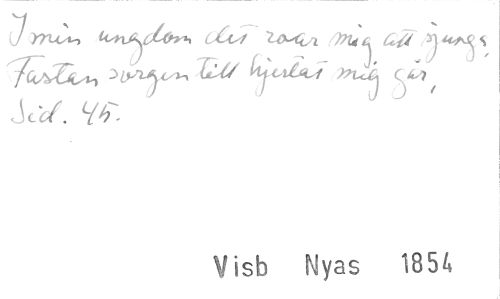 I min ungdom det roar mig att sjunga,
Fastän sorgen till hjertat mig går,
Sid. 45.
Visb Nyas 1854